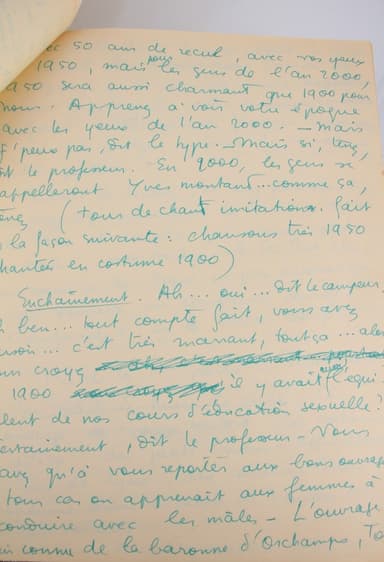 50 ans de recul, avec vos yeux
1950, mais pour les gens de l'an 2000,
1950 sera aussi charmant que 1900 pour
nous. Apprenez à voir votre époque
avec les yeux de l'an 2000. — Mais
j'peux pas, dit le type. — Mais si, tenez,
dit le professeur. En 2000, les gens se
rappelleront Yves montant... comme ça,
tenez (tour de chant imitations. fait
de la façon suivante : chansons très 1950
chantées en costume 1900)
Enchaînement. Ah... oui... dit le campeur.
ben... tout compte fait, vous avez
raison... c'est très marrant, tout ça... alors
vous croyez
1900 il y avait aussi l'équi
valent de nos cours d'éducation sexuelle ?
Certainement, dit le professeur — Vous
avez qu'à vous reporter aux bons ouvrages
tous cas on apprenait aux femmes à
conduire avec les mâles — L'ouvrage
connu de la baronne d'Orchamps,